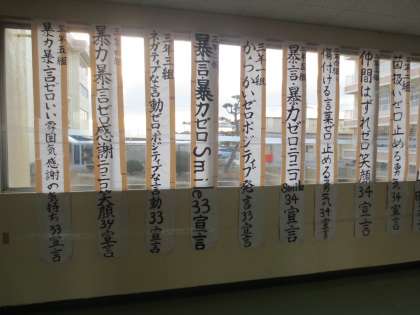 菌扱いゼロ止める勇気34宣言
仲間はずれゼロ笑顔34宣言
傷付ける言葉ゼロ止める勇気34宣言
暴言暴力ゼロニコニコSmile34宣言
三年三組
からかいゼロポジティブ発言33宣言
暴言暴力ゼロSmile33宣言
三年三組
ネガティブな言動ゼロポジティブな言動33宣言
暴力暴言ゼロ感謝ニコニコ笑顔34宣言
暴力暴言ゼロいい雰囲気感謝の気持ち33宣言